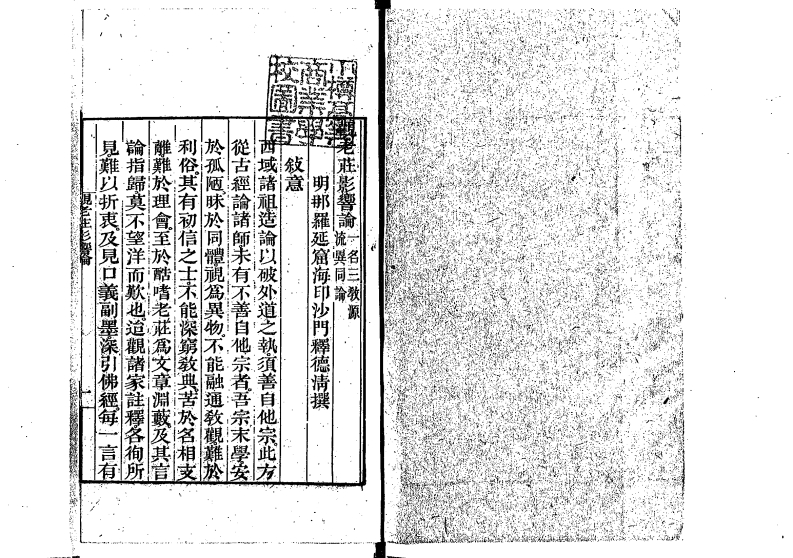 觀老莊影響論 一名三教源
流異同論
明那羅延窟海印沙門釋德清撰
敍意
西域諸祖造論以破外道之執須善自他宗此方
從古經論諸師未有不善自他宗者吾宗末學安
於孤陋昧於同體視爲異物不能融通教觀難於
利俗其有初信之士不能深窮教典苦於名相支
離難於理會至於酷嗜老莊爲文章淵藪及其言
論指歸莫不望洋而歎也迨觀諸家註釋各徇所
見難以折衷及見口義副墨深引佛經每一言有
觀老莊影響論
一
小樽高等
商業學
校圖書